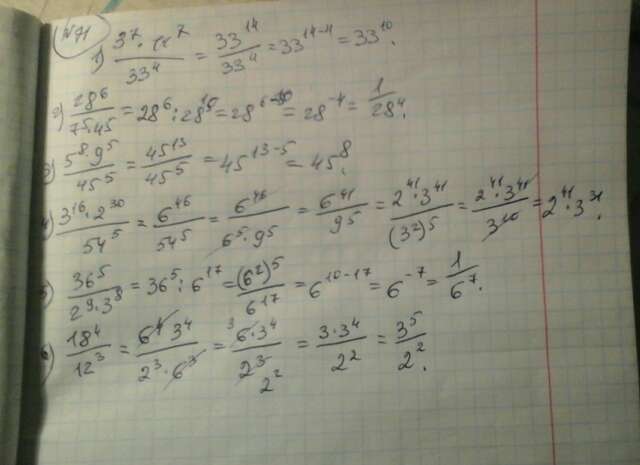 №71
1) 3⁷·11⁷/33⁴ = 33¹⁴/33⁴ = 33¹⁴⁻⁴ = 33¹⁰.
2) 28⁶/7⁵·4⁵ = 28⁶ : 28¹⁰ = 28⁶⁻¹⁰ = 28⁻⁴ = 1/28⁴.
3) 5⁸·9⁵/45⁵ = 45¹³/45⁵ = 45¹³⁻⁵ = 45⁸.
4) 3¹⁶·2³⁰/54⁵ = 6⁴⁶/54⁵ = 6⁴⁶/6⁵·9⁵ = 6⁴¹/9⁵ = 2⁴¹·3⁴¹/(3²)⁵ = 2⁴¹·3⁴¹/3¹⁰ = 2⁴¹·3³¹.
5) 36⁵/2⁹·3⁸ = 36⁵ : 6¹⁷ = (6²)⁵/6¹⁷ = 6¹⁰⁻¹⁷ = 6⁻⁷ = 1/6⁷.
6) 18⁴/12³ = 6⁴ 3⁴/2³·6³ = ³6·3⁴/2³ 2² = 3·3⁴/2² = 3⁵/2².